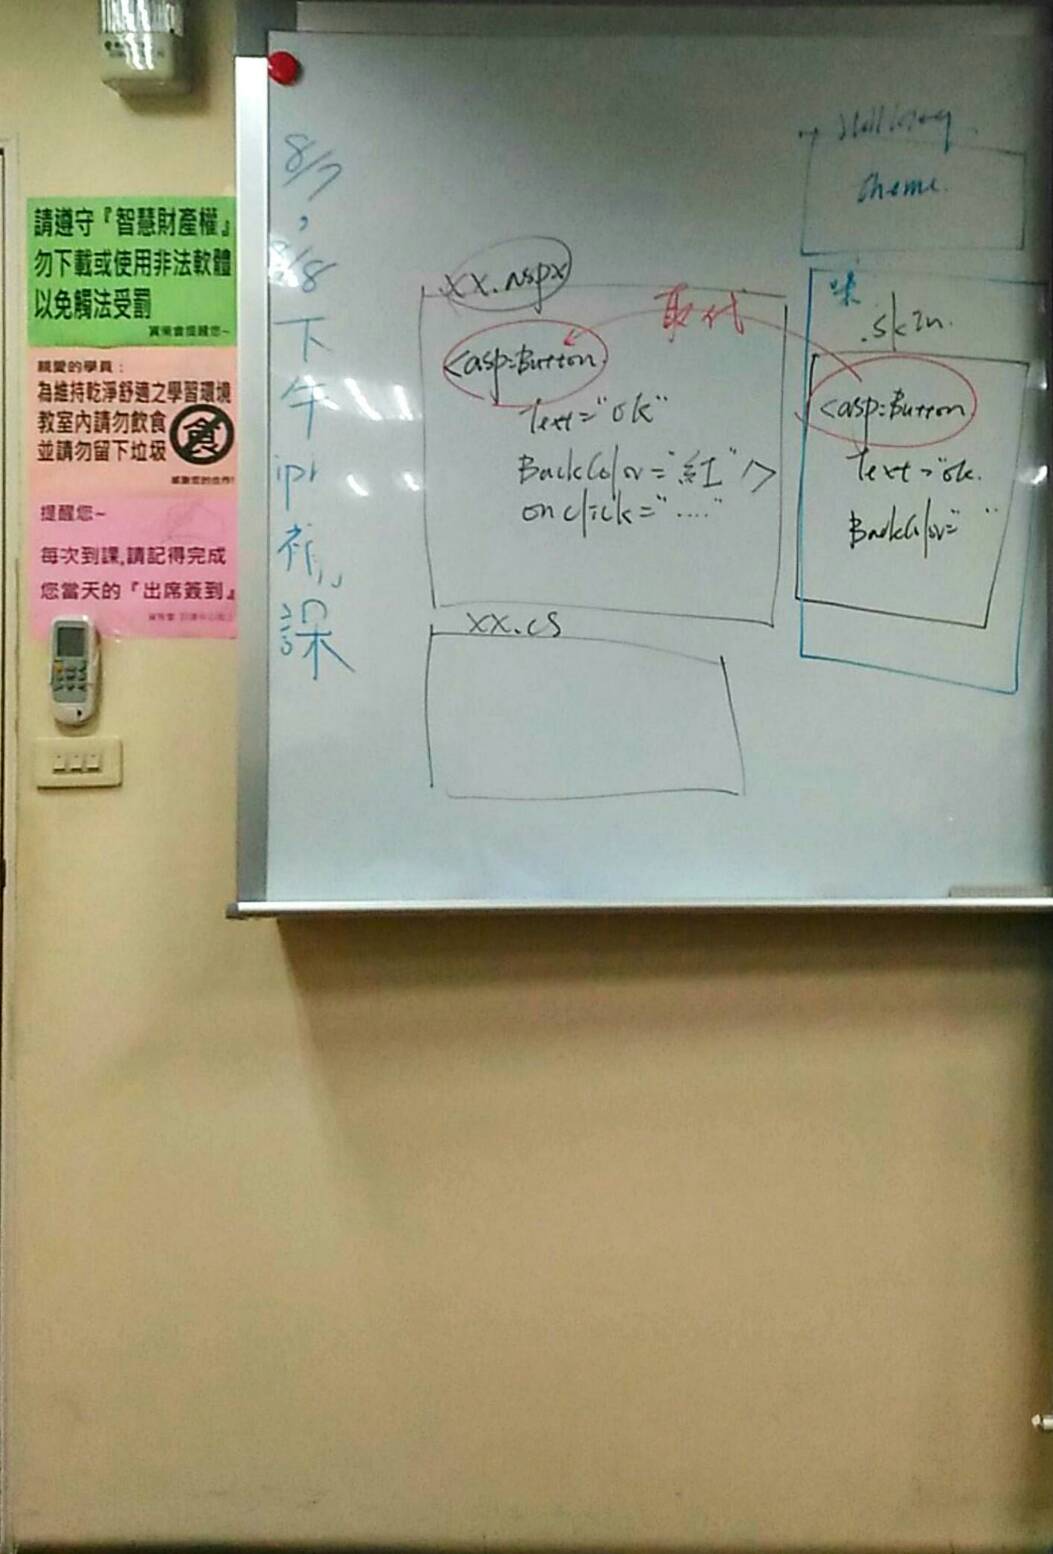 請遵守『智慧財產權』
勿下載或使用非法軟體
以免觸法受罰
資策會提醒您~
親愛的學員：
為維持乾淨舒適之學習環境
教室內請勿飲食
並請勿留下垃圾
食
感謝您的合作!
提醒您~
每次到課,請記得完成
您當天的『出席簽到』
8/7
,
8/8
下
午
補
課
xx.aspx
<asp:Button
Text="ok"
BackColor="紅" />
onclick="....."
xx.cs
取代
theme
.skin
<asp:Button
Text="ok
BackColor=" "